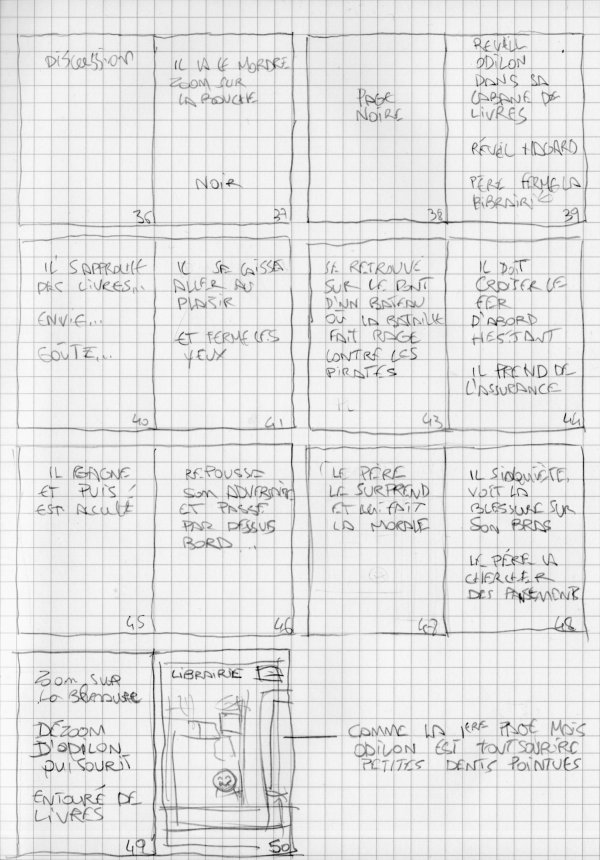 DISCUSSION
36
IL VA LE MORDRE
ZOOM SUR
LA BOUCHE
NOIR
37
PAGE
NOIRE
38
REVEIL
ODILON
DANS SA
CABANE DE
LIVRES
RÉVEIL HAGARD
PÈRE FERME LA
39
IL S'APPROCHE
DES LIVRES...
ENVIE...
GOÛTE...
40
IL SE LAISSE
ALLER AU
PLAISIR
ET FERME LES
YEUX
41
SE RETROUVE
SUR LE PONT
D'UN BATEAU
OÙ LA BATAILLE
FAIT RAGE
CONTRE LES
PIRATES
43
IL DOIT
CROISER LE
FER
D'ABORD
HESITANT
IL PREND DE
L'ASSURANCE
44
IL GAGNE
ET PUIS
EST ACCULÉ
45
REPOUSSE
SON ADVERSAIRE
ET PASSE
PAR DESSUS
BORD...
46
LE PÈRE
LE SURPREND
ET LUI FAIT
LA MORALE
47
IL S'INQUIÈTE,
VOIT LA
BLESSURE SUR
SON BRAS
LE PÈRE VA
CHERCHER
DES PANSEMENTS
48
ZOOM SUR
LA BLESSURE
DÉZOOM
D'ODILON
QUI SOURIT
ENTOURÉ DE
LIVRES
49
LIBRAIRIE
50
COMME LA 1ERE PAGE MAIS
ODILON EST TOUT SOURIRE
PETITES DENTS POINTUES